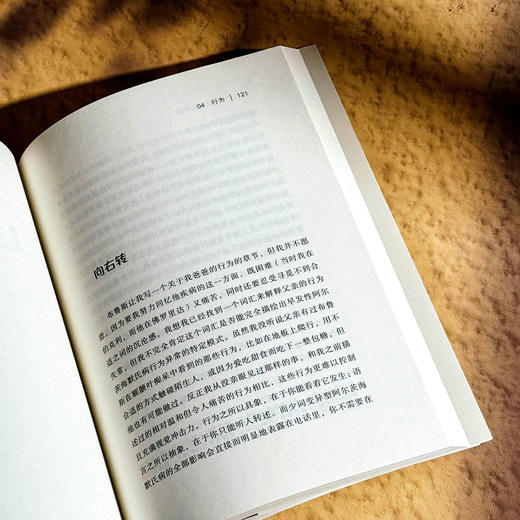 04 行为 | 121
向右转
布鲁斯让我写一个关于我爸爸的行为的章节，但我并不愿
意。因为要我努力回忆他疾病的这一方面，既困难（当时我在
伯克利，而他在佛罗里达）又痛苦，同时还要忍受寻觅不到合
适之词的沉沦感。我想我已经找到一个词汇来解释父亲的行为
失常，但我不完全肯定这个词汇是否能完全描绘出早发性阿尔
茨海默氏病行为异常的特定模式。虽然我没听说父亲有过布鲁
斯在额颞叶痴呆中看到的那些行为，比如在地板上爬行，用不
合适的方式触摸陌生人，或因为爱吃甜食而吃下一整包糖，但
他也有可能做过。反正我从没亲眼见过那样的事。和我之前描
述过的相对温和但令人痛苦的行为相比，这些行为更难以控制
且充满视觉冲击力。行为之所以具象，在于你能看看它发生；语
言之所以抽象，在于你只能听人转述。而少词变异型阿尔茨海
默氏病的全部影响会直接而明显地表露在电话里，你不需要在